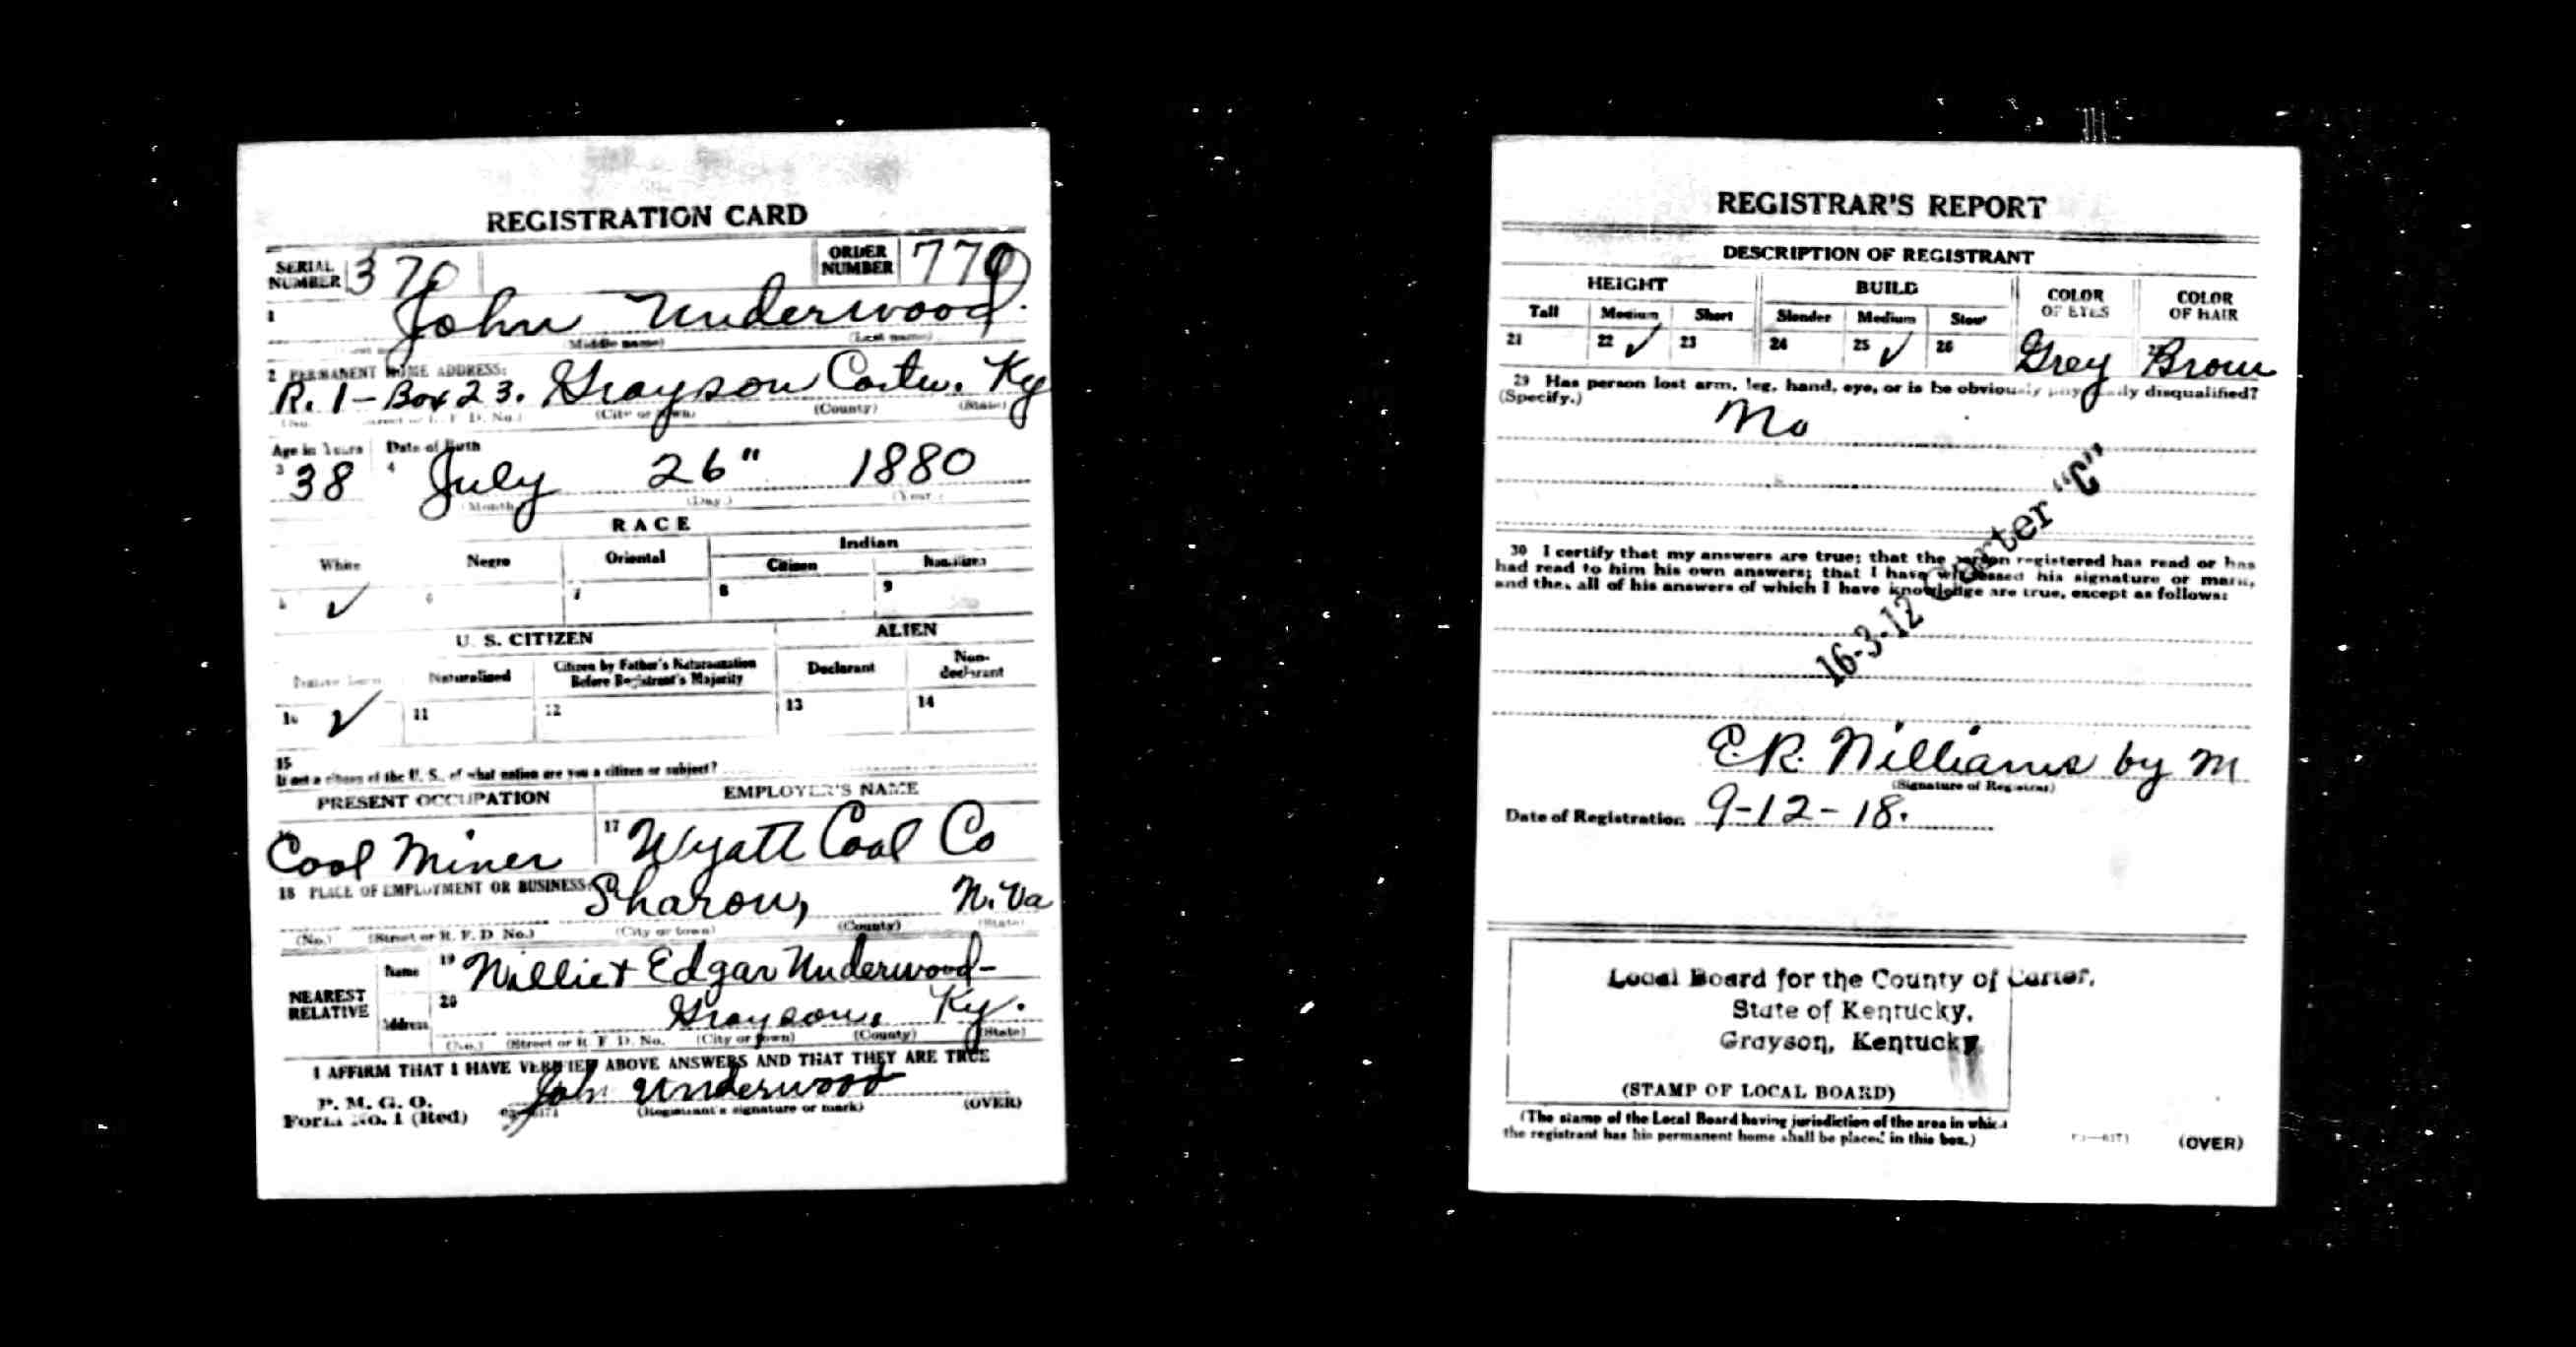 REGISTRATION CARD
SERIAL NUMBER 370 ORDER NUMBER 770
1 John Underwood
(Middle name) (Last name)
2 PERMANENT HOME ADDRESS:
R. 1 - Box 23. Grayson Carter. Ky
(No. Street or R. F. D. No.) (City or town) (County) (State)
Age in Years Date of Birth
3 38 4 July 26" 1880
(Month) (Day) (Year)
RACE
White Negro Oriental Indian
Citizen Noncitizen
5 ✓ 6 7 8 9
U. S. CITIZEN ALIEN
Native Born Naturalized Citizen by Father's Naturalization Before Registrant's Majority Declarant Non-declarant
10 ✓ 11 12 13 14
15
If not a citizen of the U. S., of what nation are you a citizen or subject?
PRESENT OCCUPATION EMPLOYER'S NAME
16 Coal Miner 17 Wyatt Coal Co
18 PLACE OF EMPLOYMENT OR BUSINESS:
Sharon, W. Va
(No.) (Street or R. F. D. No.) (City or town) (County) (State)
NEAREST RELATIVE
Name 19 Willie + Edgar Underwood-
Address 20 Grayson, Ky.
(No.) (Street or R. F. D. No. (City or town) (County) (State)
I AFFIRM THAT I HAVE VERIFIED ABOVE ANSWERS AND THAT THEY ARE TRUE
P. M. G. O.
Form No. 1 (Red) John Underwood
(Registrant's signature or mark) (OVER)
REGISTRAR'S REPORT
DESCRIPTION OF REGISTRANT
HEIGHT BUILD COLOR OF EYES COLOR OF HAIR
Tall Medium Short Slender Medium Stout
21 22 ✓ 23 24 25 ✓ 26 Grey Brown
29 Has person lost arm, leg, hand, eye, or is he obviously physically disqualified?
(Specify.)
No
16-3-12 Carter "C"
30 I certify that my answers are true; that the person registered has read or has
had read to him his own answers; that I have witnessed his signature or mark,
and that all of his answers of which I have knowledge are true, except as follows:
E.R. Williams by M
(Signature of Registrar)
Date of Registration 9-12-18.
Local Board for the County of Carter,
State of Kentucky,
Grayson, Kentucky
(STAMP OF LOCAL BOARD)
(The stamp of the Local Board having jurisdiction of the area in which
the registrant has his permanent home shall be placed in this box.)
03-6171 (OVER)